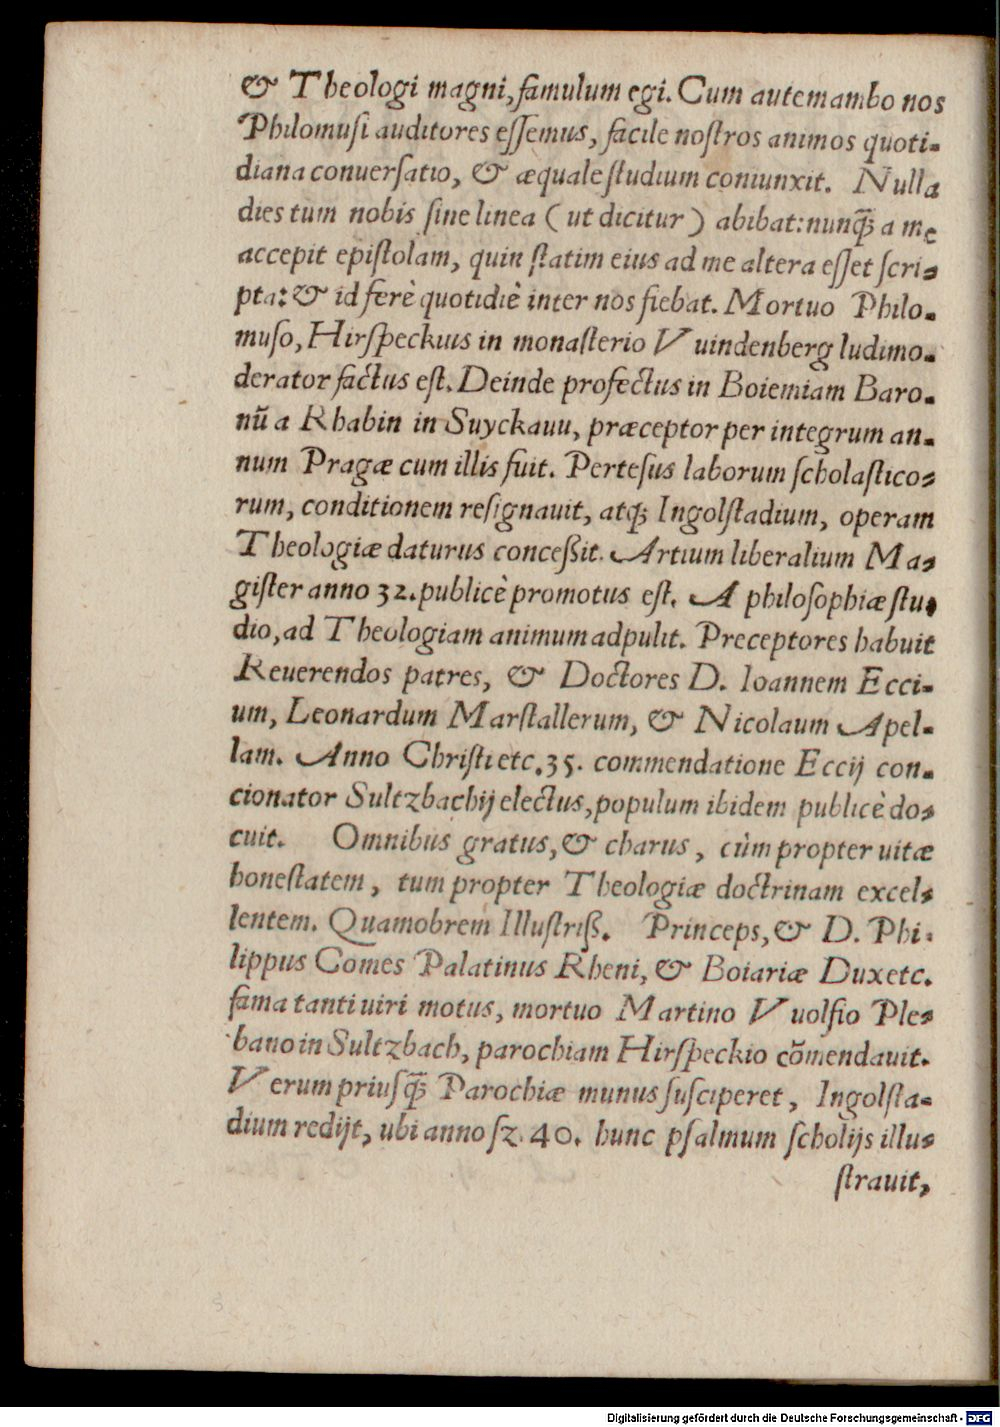 & Theologi magni, famulum egi. Cum autem ambo nos
Philomusi auditores eſſemus, facile noſtros animos quoti-
diana conuerſatio, & æquale ſtudium coniunxit. Nulla
dies tum nobis ſine linea (ut dicitur) abibat: nunq̃ a me
accepit epiſtolam, quin ſtatim eius ad me altera eſſet ſcri-
pta: & id ferè quotidiè inter nos fiebat. Mortuo Philo-
muſo, Hirſpeckius in monaſterio Vuindenberg ludimo-
derator factus eſt. Deinde profectus in Boiemiam Baro-
nū a Rhabin in Suyckauu, præceptor per integrum an-
num Pragæ cum illis fuit. Perteſus laborum ſcholaſtico-
rum, conditionem reſignauit, atq; Ingolſtadium, operam
Theologiæ daturus conceßit. Artium liberalium Ma-
giſter anno 32. publicè promotus eſt. A philoſophiæ ſtu-
dio, ad Theologiam animum adpulit. Preceptores habuit
Reuerendos patres, & Doctores D. Ioannem Ecci-
um, Leonardum Marſtallerum, & Nicolaum Apel-
lam. Anno Chriſti etc. 35. commendatione Eccij con-
cionator Sultzbachij electus, populum ibidem publicè do-
cuit. Omnibus gratus, & charus, cùm propter uitæ
honeſtatem, tum propter Theologiæ doctrinam excel-
lentem. Quamobrem Illuſtriß. Princeps, & D. Phi-
lippus Comes Palatinus Rheni, & Boiariæ Dux etc.
fama tanti uiri motus, mortuo Martino Vuolfio Ple-
bano in Sultzbach, parochiam Hirſpeckio cōmendauit.
Verum priuſq̃ Parochiæ munus ſuſciperet, Ingolſta-
dium redijt, ubi anno ſz. 40. hunc pſalmum ſcholijs illu-
ſtrauit,
Digitalisierung gefördert durch die Deutsche Forschungsgemeinschaft - DFG